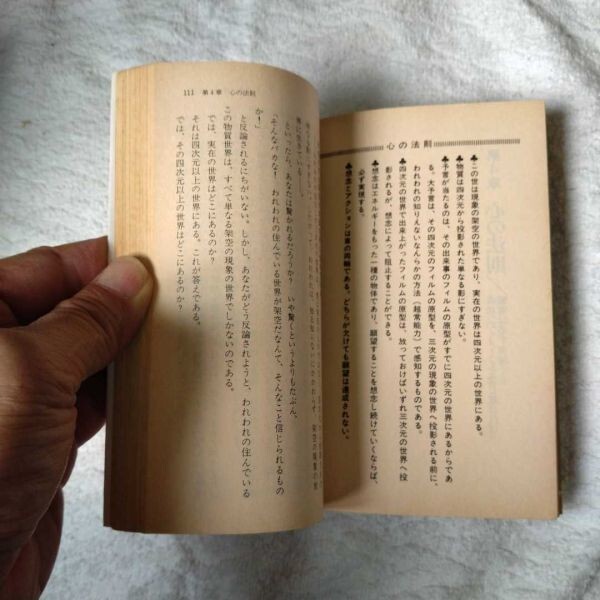 心の法則
♣この世は現象の架空の世界であり、実在の世界は四次元以上の世界にある。
♣物質は四次元から投影された単なる影にすぎない。
♣予言が当たるのは、その出来事のフィルムの原型がすでに四次元の世界にあるからであ
る。大予言は、その四次元のフィルムの原型を、三次元の現象の世界へ投影される前に、
われわれの知りえないなんらかの方法（超常能力）で感知するものである。
♣四次元の世界で出来上がったフィルムの原型は、放っておけばいずれ三次元の世界へ投
影されるが、想念によって阻止することができる。
♣想念はエネルギーをもった一種の物体であり、願望することを想念し続けていくならば、
必ず実現する。
♣想念とアクションは車の両輪である。どちらが欠けても願望は達成されない。
111 第4章 心の法則
界に生きている。
といったら、あなたは驚かれるだろうか？ いや驚くというよりもたぶん、
「そんなバカな！ われわれの住んでいる世界が架空だなんて、そんなこと信じられるもの
か！」
と反論されるにちがいない。しかし、あなたがどう反論されようと、われわれの住んでいる
この物質世界は、すべて単なる架空の現象の世界でしかないのである。
では、実在の世界はどこにあるのか？
それは四次元以上の世界にある。これが答えである。
では、その四次元以上の世界はどこにあるのか？